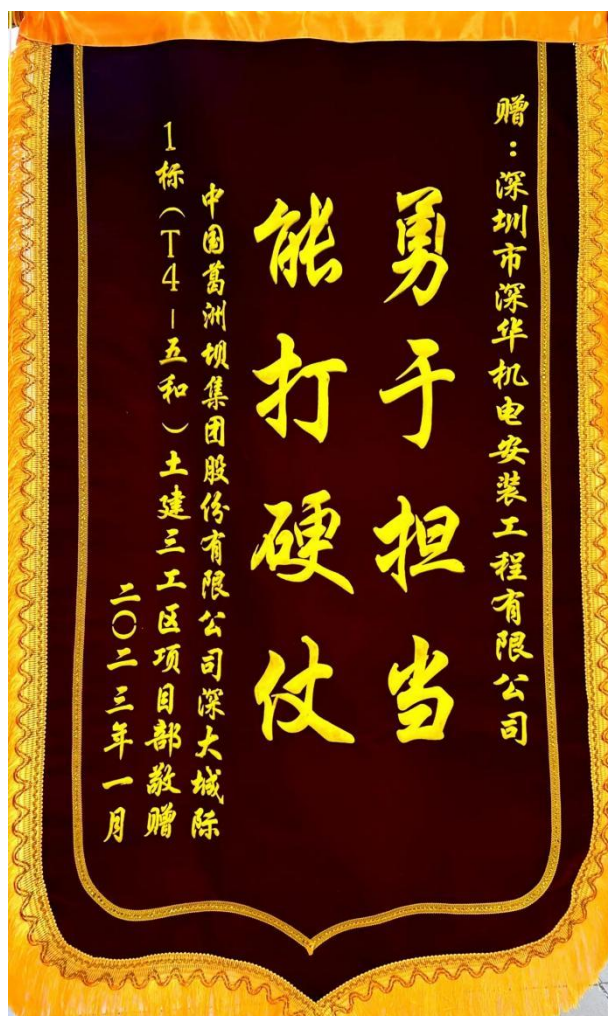 赠：深圳市深华机电安装工程有限公司
勇于担当
能打硬仗
中国葛洲坝集团股份有限公司深大城际
1标（T4－五和）土建三工区项目部敬赠
二〇二三年一月